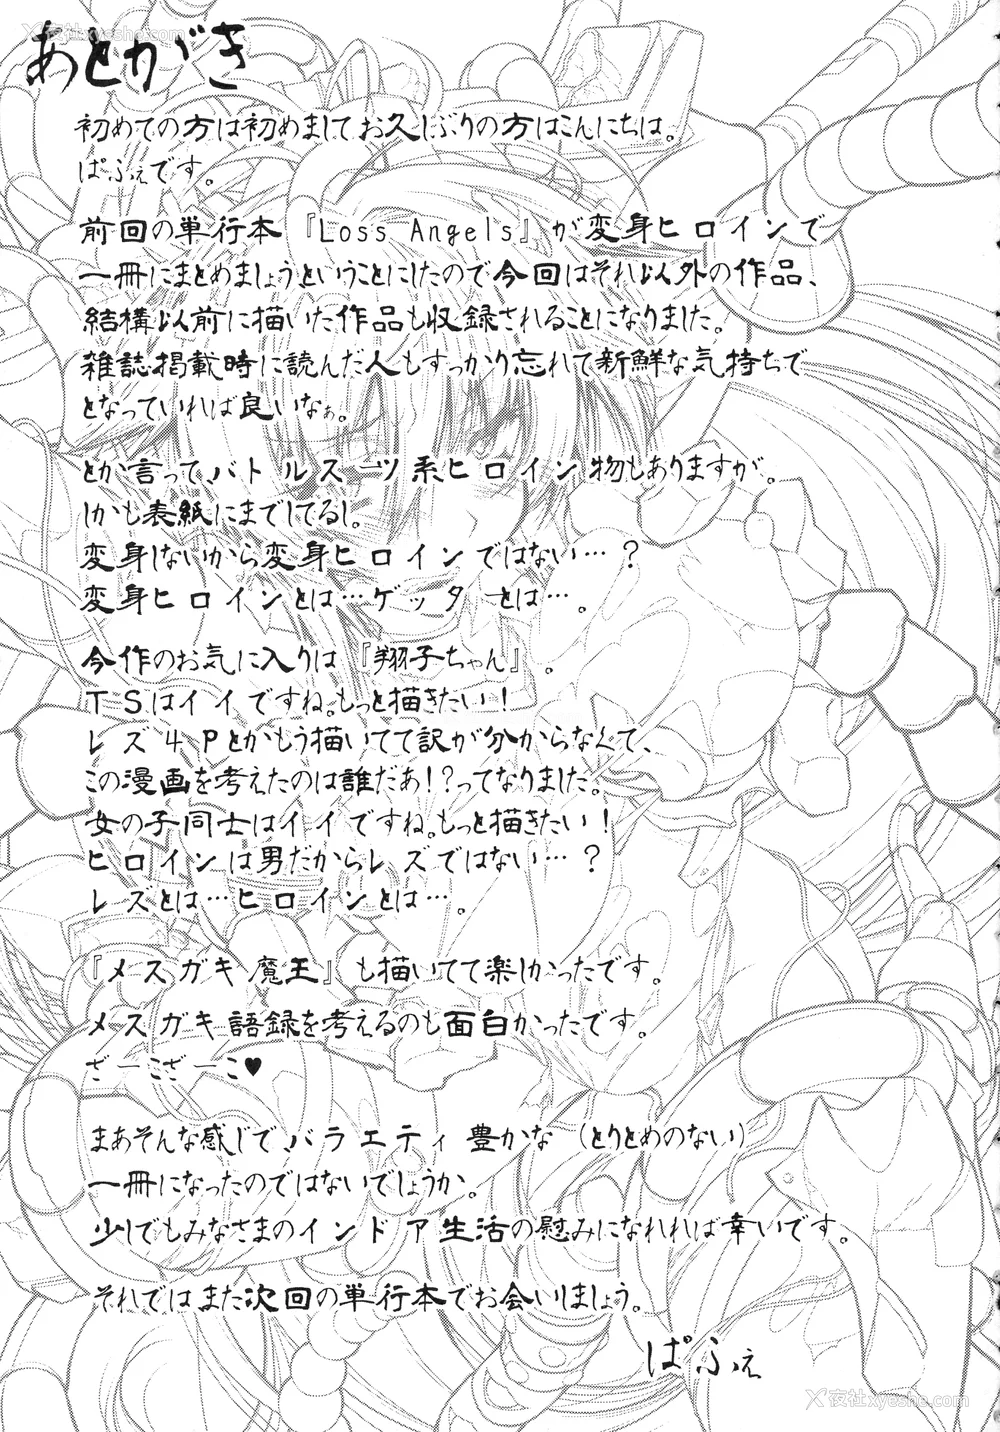 X夜社xyeshe.com
あとがき
初めての方は初めましてお久しぶりの方はこんにちは。
ぱふぇです。
前回の単行本『Loss Angels』が変身ヒロインで
一冊にまとめましょうということにしたので今回はそれ以外の作品、
結構以前に描いた作品も収録されることになりました。
雑誌掲載時に読んだ人もすっかり忘れて新鮮な気持ちで
となっていれば良いなぁ。
とか言って、バトルスーツ系ヒロイン物もありますが。
しかも表紙にまでしてるし。
変身しないから変身ヒロインではない…?
変身ヒロインとは…ゲッターとは…。
今作のお気に入りは『翔子ちゃん』。
TSはイイですね。もっと描きたい!
レズ4Pとかもう描いてて訳が分からなくて、
この漫画を考えたのは誰だあ!?ってなりました。
女の子同士はイイですね。もっと描きたい!
ヒロインは男だからレズではない…?
レズとは…ヒロインとは…。
『メスガキ魔王』も描いてて楽しかったです。
メスガキ語録を考えるのも面白かったです。
ざーこざーこ♥
まあそんな感じで、バラエティ豊かな(とりとめのない)
一冊になったのではないでしょうか。
少しでもみなさまのインドア生活の慰みになれれば幸いです。
それではまた次回の単行本でお会いしましょう。
ぱふぇ
X夜社xyeshe.com